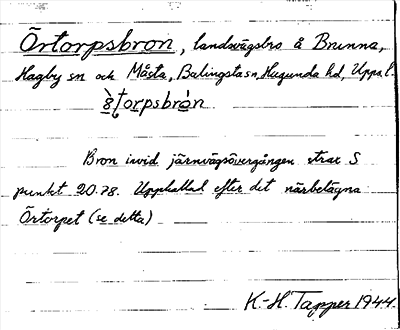 Örtorpsbron, landsvägsbro å Brunna,
Hagby sn och Måsta, Balingsta sn, Hagunda hd, Uppl.
Bron invid järnvägsövergången strax S
punkt 20.78. Uppkallad efter det närbelägna
Örtorpet (se detta)
K.-H. Tapper 1944.